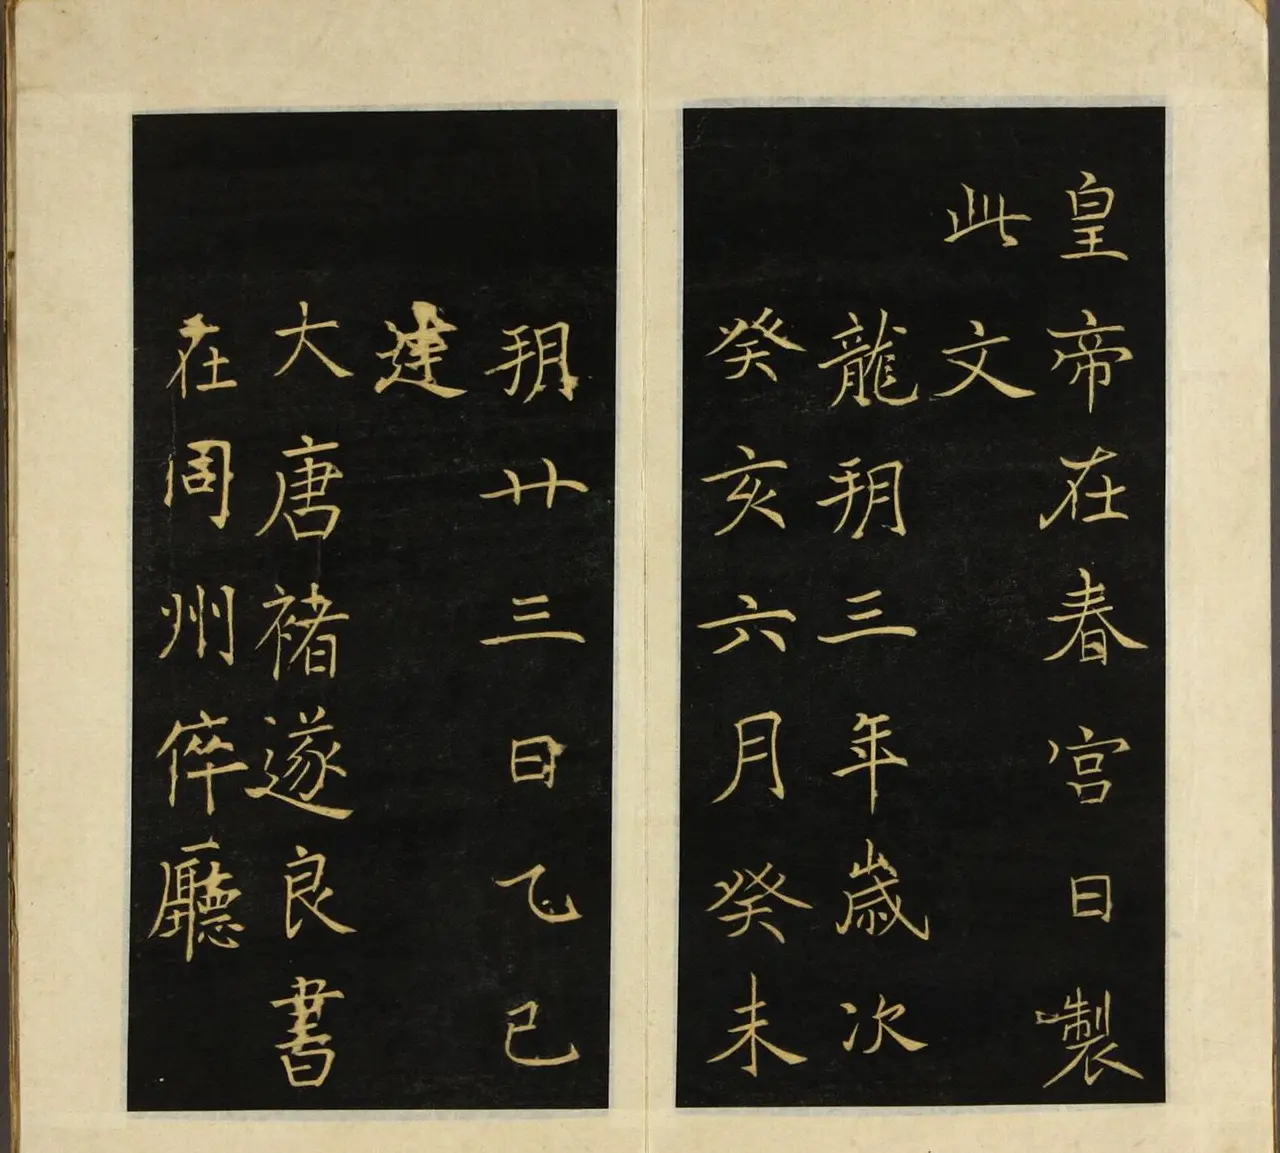 皇帝在春宮日製
此文
龍朔三年歲次
癸亥六月癸未
朔廿三日乙巳
建
大唐褚遂良書
在同州倅廳